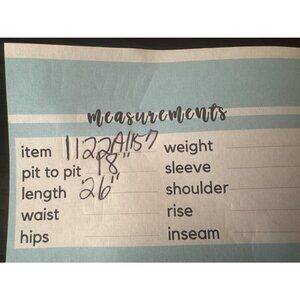 measurements
item 1122A1157 weight
pit to pit 18" sleeve
length 26" shoulder
waist rise
hips inseam